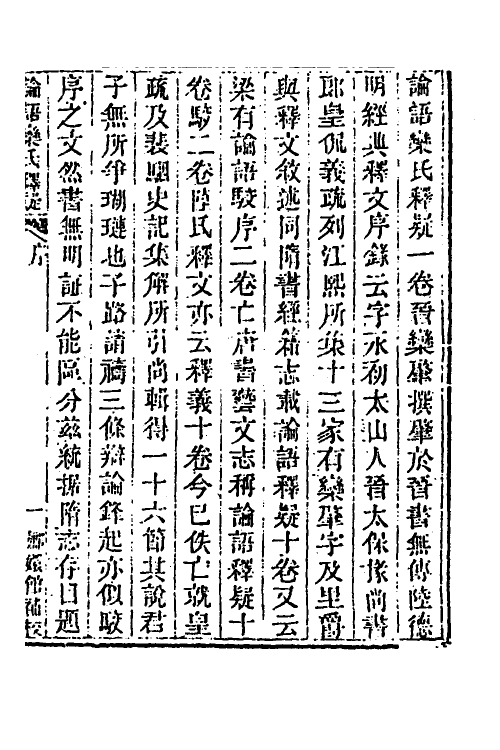 論語欒氏釋疑一卷晉欒肇撰肇於晉書無傳陸德
明經典釋文序錄云字永初太山人晉太保掾尚書
郎皇侃義疏列江熙所集十三家有欒肇字及里爵
與釋文敘述同隋書經籍志載論語釋疑十卷又云
梁有論語駁序二卷亡唐書藝文志稱論語釋疑十
卷駁二卷陸氏釋文亦云釋義十卷今已佚亡就皇
疏及裴駰史記集解所引尚輯得一十六節其說君
子無所爭瑚璉也子路請禱三條辯論鋒起亦似駁
序之文然書無明証不能區分茲統據隋志存目題
論語欒氏釋疑 序 一 嫏嬛館補校